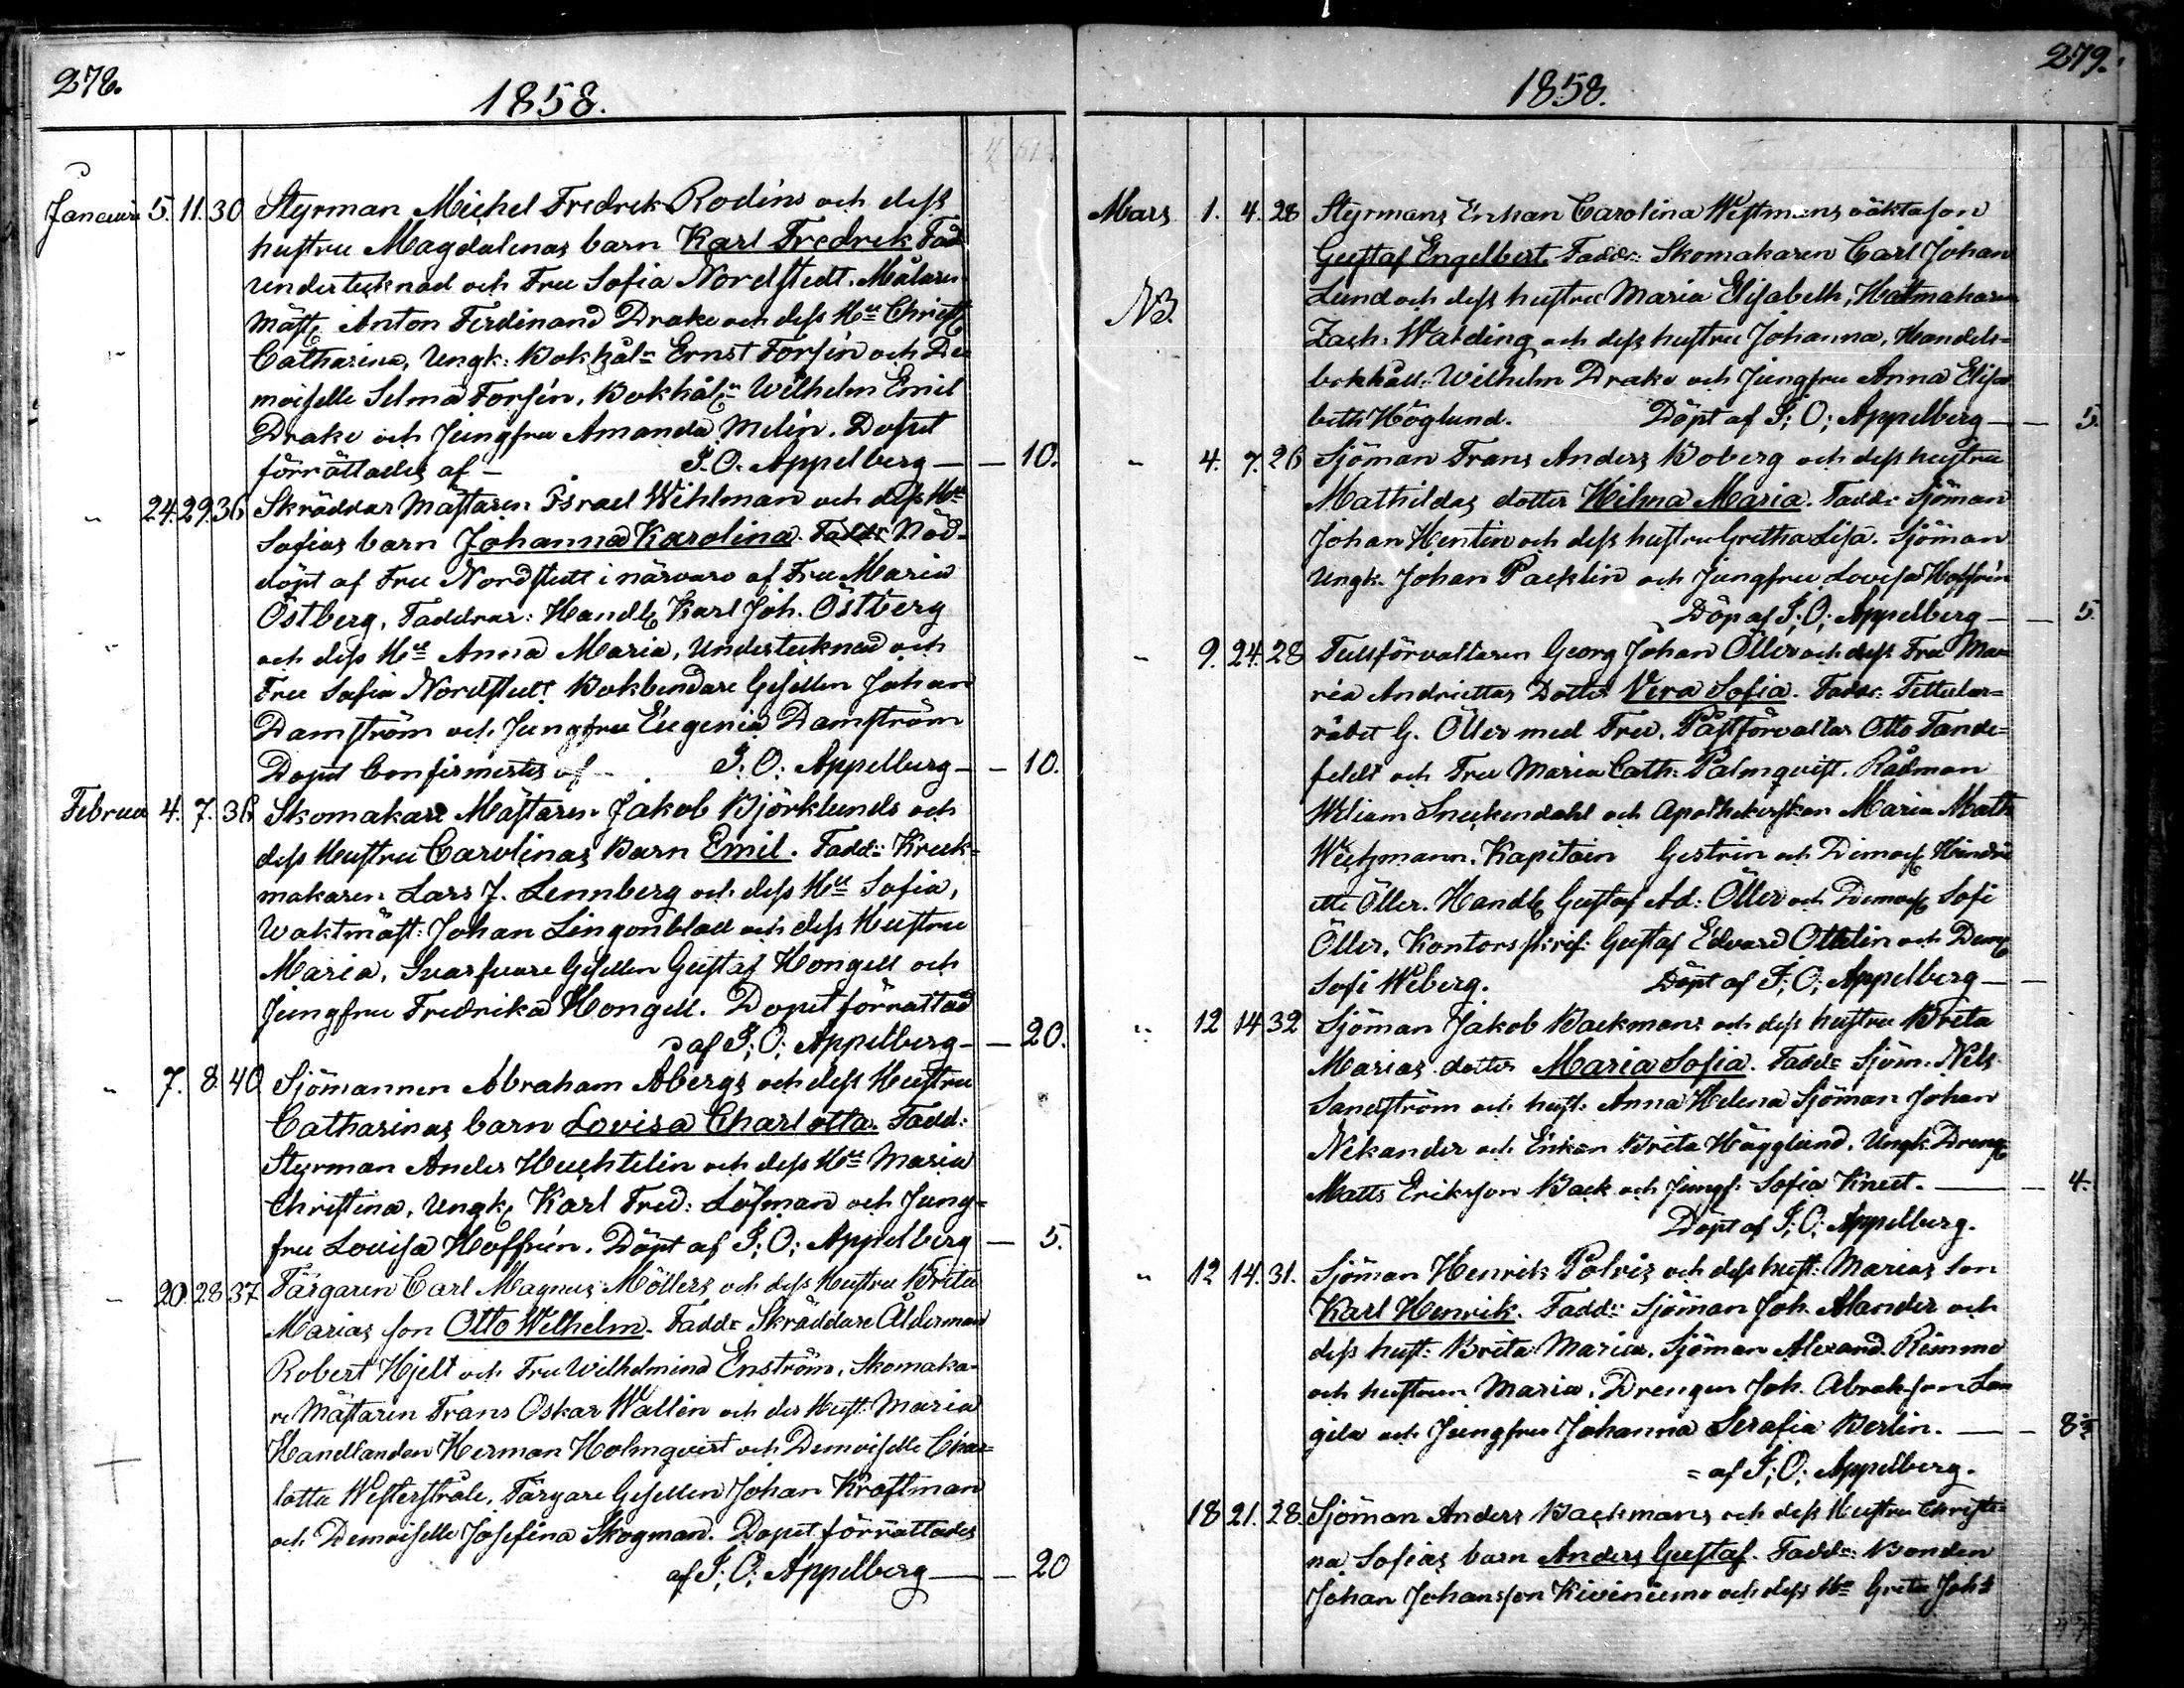 278.
1858.
Januari 5. 11. 30 Styrman Michel Fredrik Rodéns och dess
hustru Magdalenas barn Karl Fredrek Fad
undertecknad och Fru Sofia Nordstedt. Målare
mäst. Anton Ferdinand Drake och dess Hu Christ
Catharina, Ungk: Bokhål: Ernst Forsén och De
moiselle Selma Forsén, Bokhål: Wilhelm Emil
Drake och Jungfru Amanda Melin. Dopet
förrättades af – J. O. Appelberg — — 10.
" 24. 29. 36 Skräddar Mästaren Israel Wihlman och dess Hu
Sofias barn Johanna Karolina. Fadd: Nöd-
döpt af Fru Nordstedt i närvaro af Fru Maria
Östberg, Faddrar: Handl. Karl Joh. Östberg
och dess Hu Anna Maria, Undertecknad och
Fru Sofia Nordstedt Bokbindare Gesellen Johan
Damström och Jungfru Eugenia Damström
Dopet Confirmertes af – J: O: Appelberg — — 10.
Februa 4. 7. 36 Skomakare Mästaren Jakob Björklunds och
dess Hustru Carolinas Barn Emil. Fadd: Kruk-
makaren Lars J. Lennberg och dess Hu Sofia,
Waktmäst: Johan Lingonblad och dess Hustru
Maria, Svarfvare Gesellen Gustaf Hongell och
Jungfru Fredrika Hongell. Dopet förrättad
af J: O: Appelberg — — 20.
" 7. 8. 40. Sjömannen Abraham Åbergs och dess Hustru
Catharinas barn Lovisa Charlotta. Fadd:
Styrman Anders Huchtelin och dess Hu Maria
Christina, Ungk. Karl Fred: Löfman och Jung-
fru Lovisa Hoffrén. Döpt af J: O: Appelberg — 5.
" 20. 28. 37 Färgaren Carl Magnus Möllers och dess Hustru Brita
Marias son Otto Wilhelm. Fadd: Skräddare Ålderman
Robert Hjelt och Fru Wilhelmina Enström, Skomaka-
re Mästaren Frans Oskar Wallén och des Hust: Maria
Handlanden Herman Holmqvist och Demoiselle Char-
lotta Westerstråle, Färgare Gesellen Johan Kraftman
och Demoiselle Josefina Skogman. Dopet förrättades
af J: O: Appelberg — — 20
279.
1858.
Mars 1. 4. 28 Styrmans Enkan Carolina Westmans oäkta son
Gustaf Engelbert. Fadd: Skomakaren Carl Johan
NB. Lund och dess hustru Maria Elisabeth, Hattmakaren
Zach: Walding och dess hustru Johanna, Handels-
bokhåll: Wilhelm Drake och Jungfru Anna Elisa
beth Höglund. Döpt af J: O: Appelberg — — 5.
" 4. 7. 26 Sjöman Frans Anders Boberg och dess hustru
Mathildas dotter Hilma Maria. Fadd: Sjöman
Johan Hentin och dess hustru Gretha Lisa. Sjöman
Ungk. Johan Packlin och Jungfru Lovisa Hoffrén
Döp af J: O: Appelberg — — 5.
" 9. 24. 28 Tullförvaltaren Georg Johan Öller och dess Fru Ma-
ria Andriettas Dotter Vera Sofia. Fadd: Tittular-
rådet G. Öller med Fru. Påstförvaltar Otto Tande-
feldt och Fru Maria Cath: Palmqvist. Rådman
Wiliam Sneckendahl och Apothekerskan Maria Math
Wichmann. Kapitain Gestrin och Demois Hindri
ette Öller. Handl. Gustaf Ad: Öller och Demois Sofi
Öller, Kontorsskrif: Gustaf Edvard Ottelin och Dem
Sofi Weberg. Döpt af J: O: Appelberg — —
" 12 14 32 Sjöman Jakob Backmans och dess hustru Brita
Marias dotter Maria Sofia. Fadd: Sjöm. Nils
Sandström och hust: Anna Helena Sjöman Johan
Nikander och Enkan Brita Hägglund. Ungk. Dreng
Matts Eriksson Back och Jungf: Sofia Knut. — — 4.
Döpt af J: O: Appelberg.
" 12 14. 31. Sjöman Henrik Polvis och dess hust: Marias Son
Karl Henrik. Fadd: Sjöman Joh. Alander och
dess hust: Brita Maria. Sjöman Alexand. Rimme
och hustrun Maria, Drengen Joh. Abrahson Lan
gila och Jungfru Johanna Serafia Berlin. — — 8
= af J: O: Appelberg.
18 21. 28. Sjöman Anders Backmans och dess Hustru Christi-
na Sofias barn Anders Gustaf. Fadd: Bonden
Johan Johansson Kivinieme och dess Hu Greta Joh: